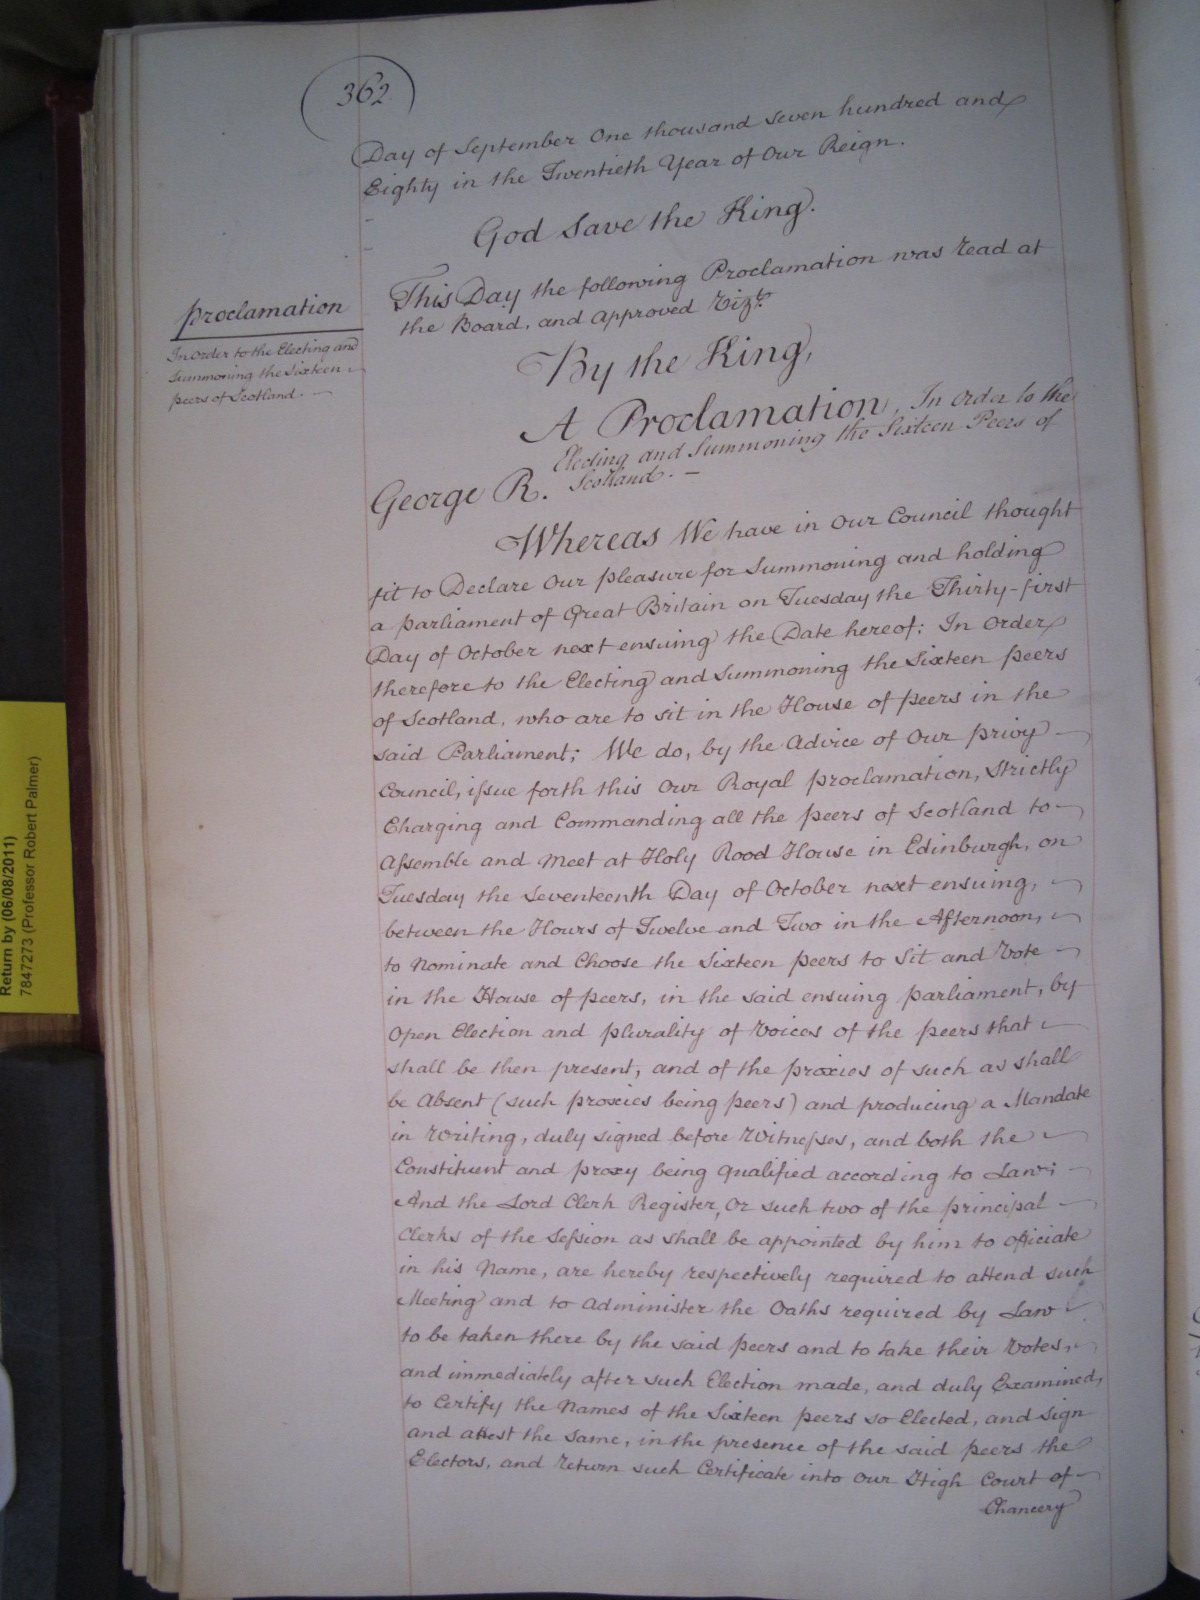 362
Day of September One thousand Seven hundred and
Eighty in the Twentieth Year of Our Reign.
God Save the King.
This Day the following Proclamation was read at
the Board, and approved Vizt.
Proclamation
In order to the Electing and
Summoning the Sixteen
peers of Scotland.
By the King,
A Proclamation, In order to the
Electing and Summoning the Sixteen Peers of
Scotland. —
George R.
Whereas We have in Our Council thought
fit to Declare Our pleasure for Summoning and holding
a parliament of Great Britain on Tuesday the Thirty-first
Day of October next ensuing the Date hereof: In Order
therefore to the Electing and Summoning the Sixteen peers
of Scotland, who are to sit in the House of peers in the
said Parliament; We do, by the Advice of Our privy
Council, issue forth this Our Royal proclamation, strictly
Charging and Commanding all the peers of Scotland to
Assemble and meet at Holy Rood House in Edinburgh, on
Tuesday the Seventeenth Day of October next ensuing,
between the Hours of Twelve and Two in the Afternoon,
to Nominate and Choose the Sixteen peers to Sit and Vote
in the House of peers, in the said ensuing parliament, by
Open Election and plurality of Voices of the peers that
shall be then present, and of the proxies of such as shall
be Absent (such proxies being peers) and producing a Mandate
in Writing, duly signed before Witnesses, and both the
Constituent and proxy being qualified according to Law;
And the Lord Clerk Register, Or such two of the principal
Clerks of the Session as shall be appointed by him to officiate
in his Name, are hereby respectively required to attend such
Meeting and to administer the Oaths required by Law
to be taken there by the said peers and to take their Votes,
and immediately after such Election made, and duly Examined,
to Certify the Names of the Sixteen peers so Elected, and sign
and attest the same, in the presence of the said peers the
Electors, and return such Certificate into Our High Court of
Chancery
Return by (06/08/2011)
7847273 (Professor Robert Palmer)